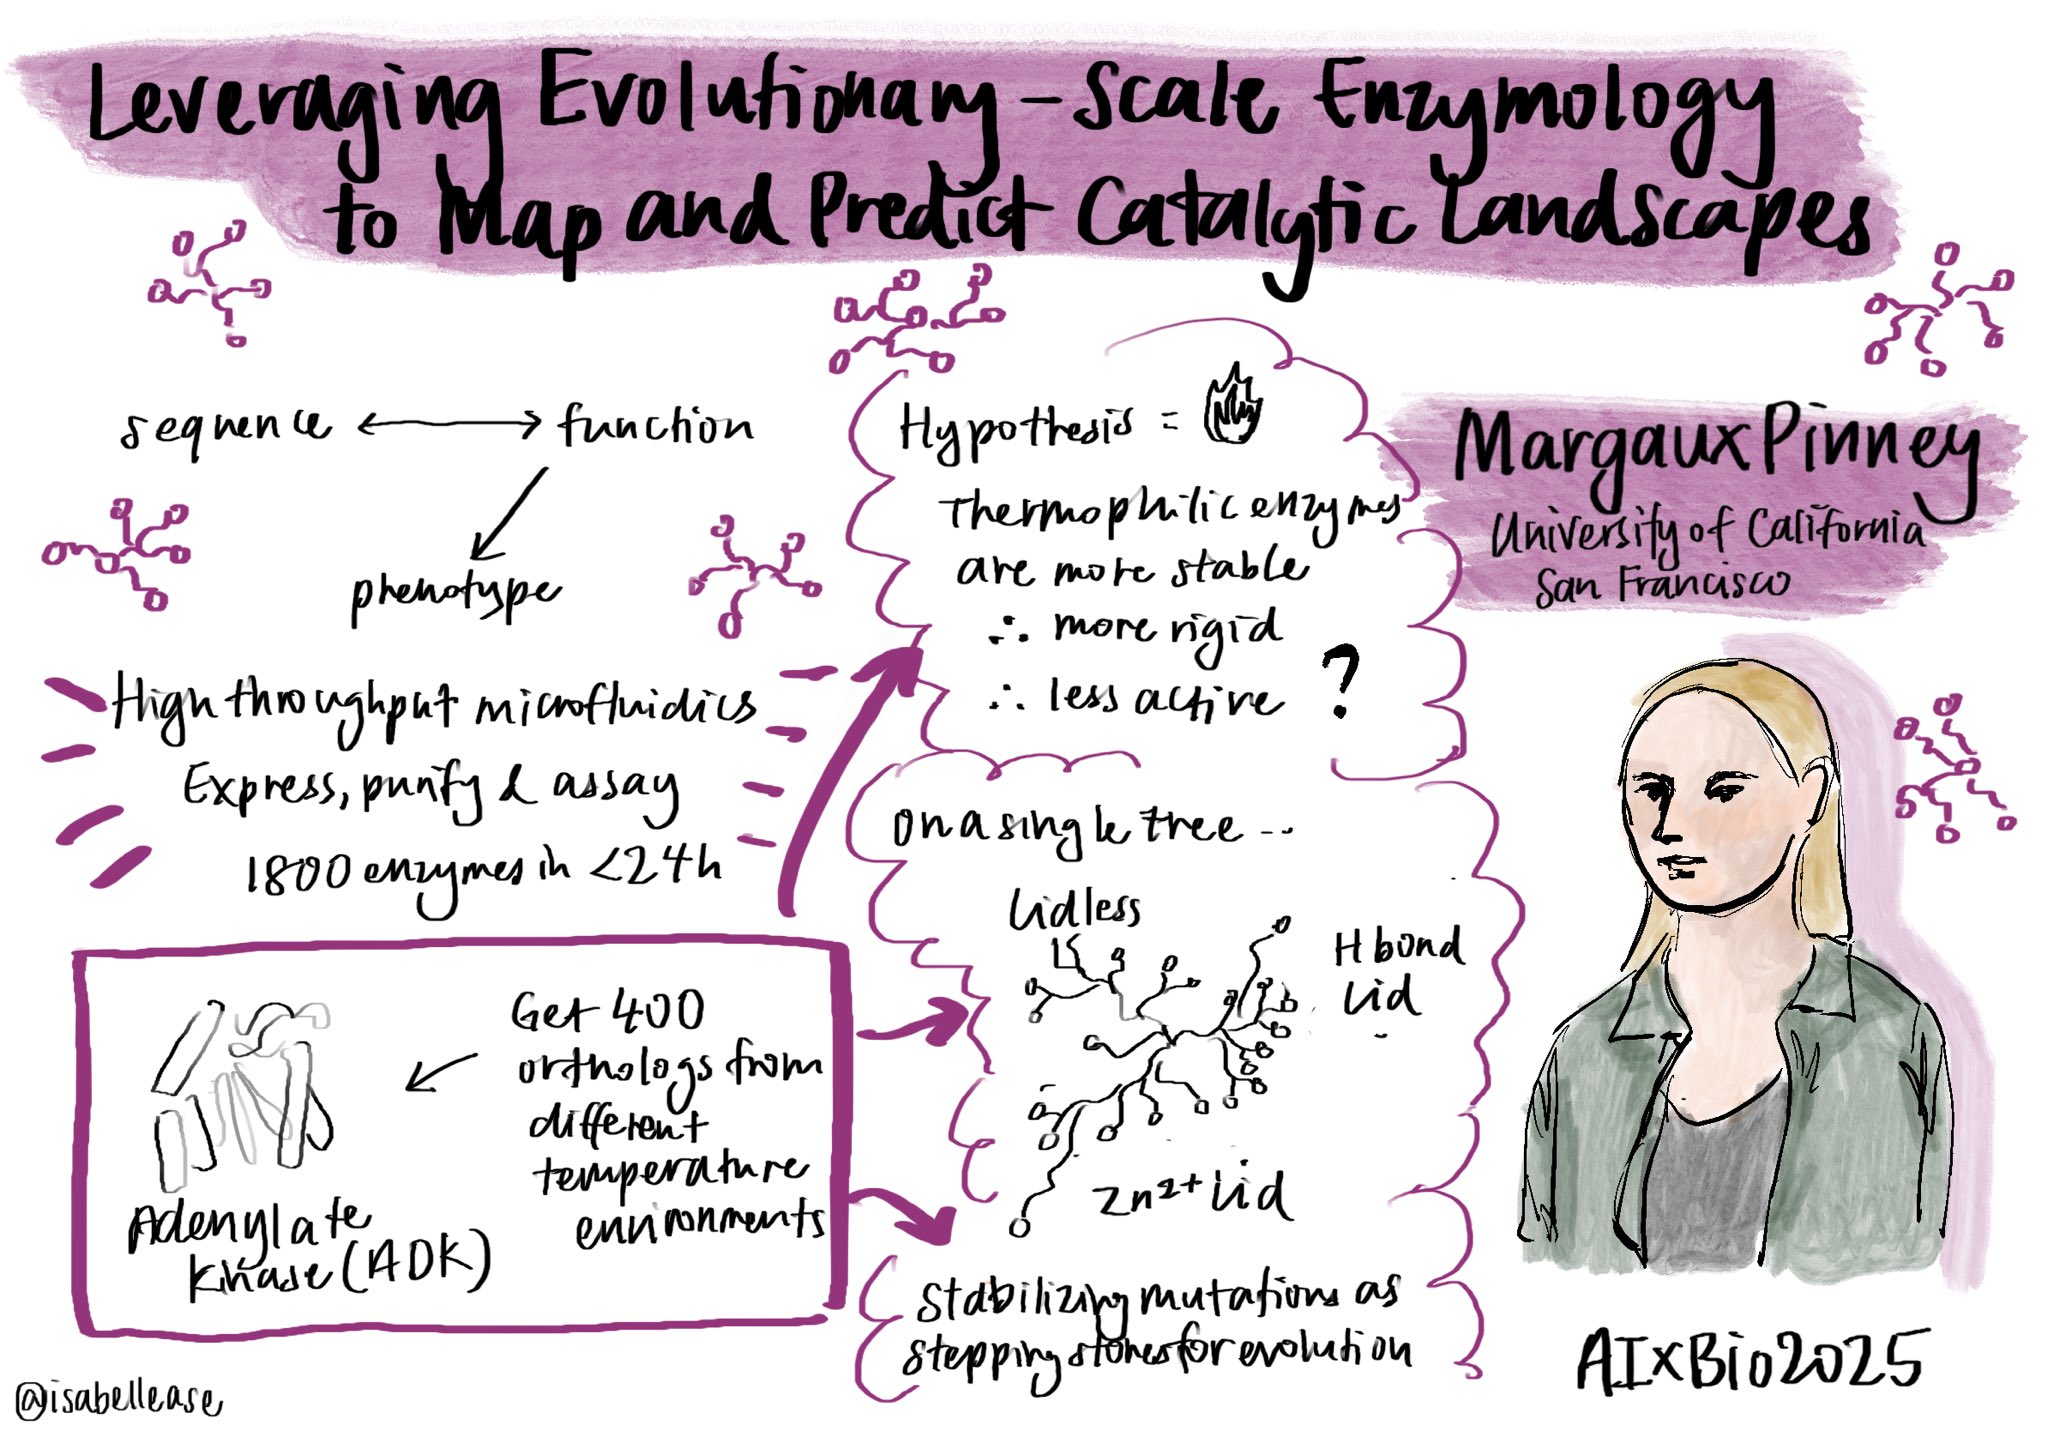 Leveraging Evolutionary-Scale Enzymology
to Map and Predict Catalytic Landscapes
sequence ↔ function
phenotype
High throughput microfluidics
Express, purify & assay
1800 enzymes in <24h
Adenylate
Kinase (ADK)
Get 400
orthologs from
different
temperature
environments
Hypothesis =
Thermophilic enzymes
are more stable
∴ more rigid
∴ less active ?
On a single tree ...
Lidless
H bond
Lid
Zn2+ Lid
Stabilizing mutations as
stepping stones for evolution
Margaux Pinney
University of California
San Francisco
AIxBio2025
@isabellease